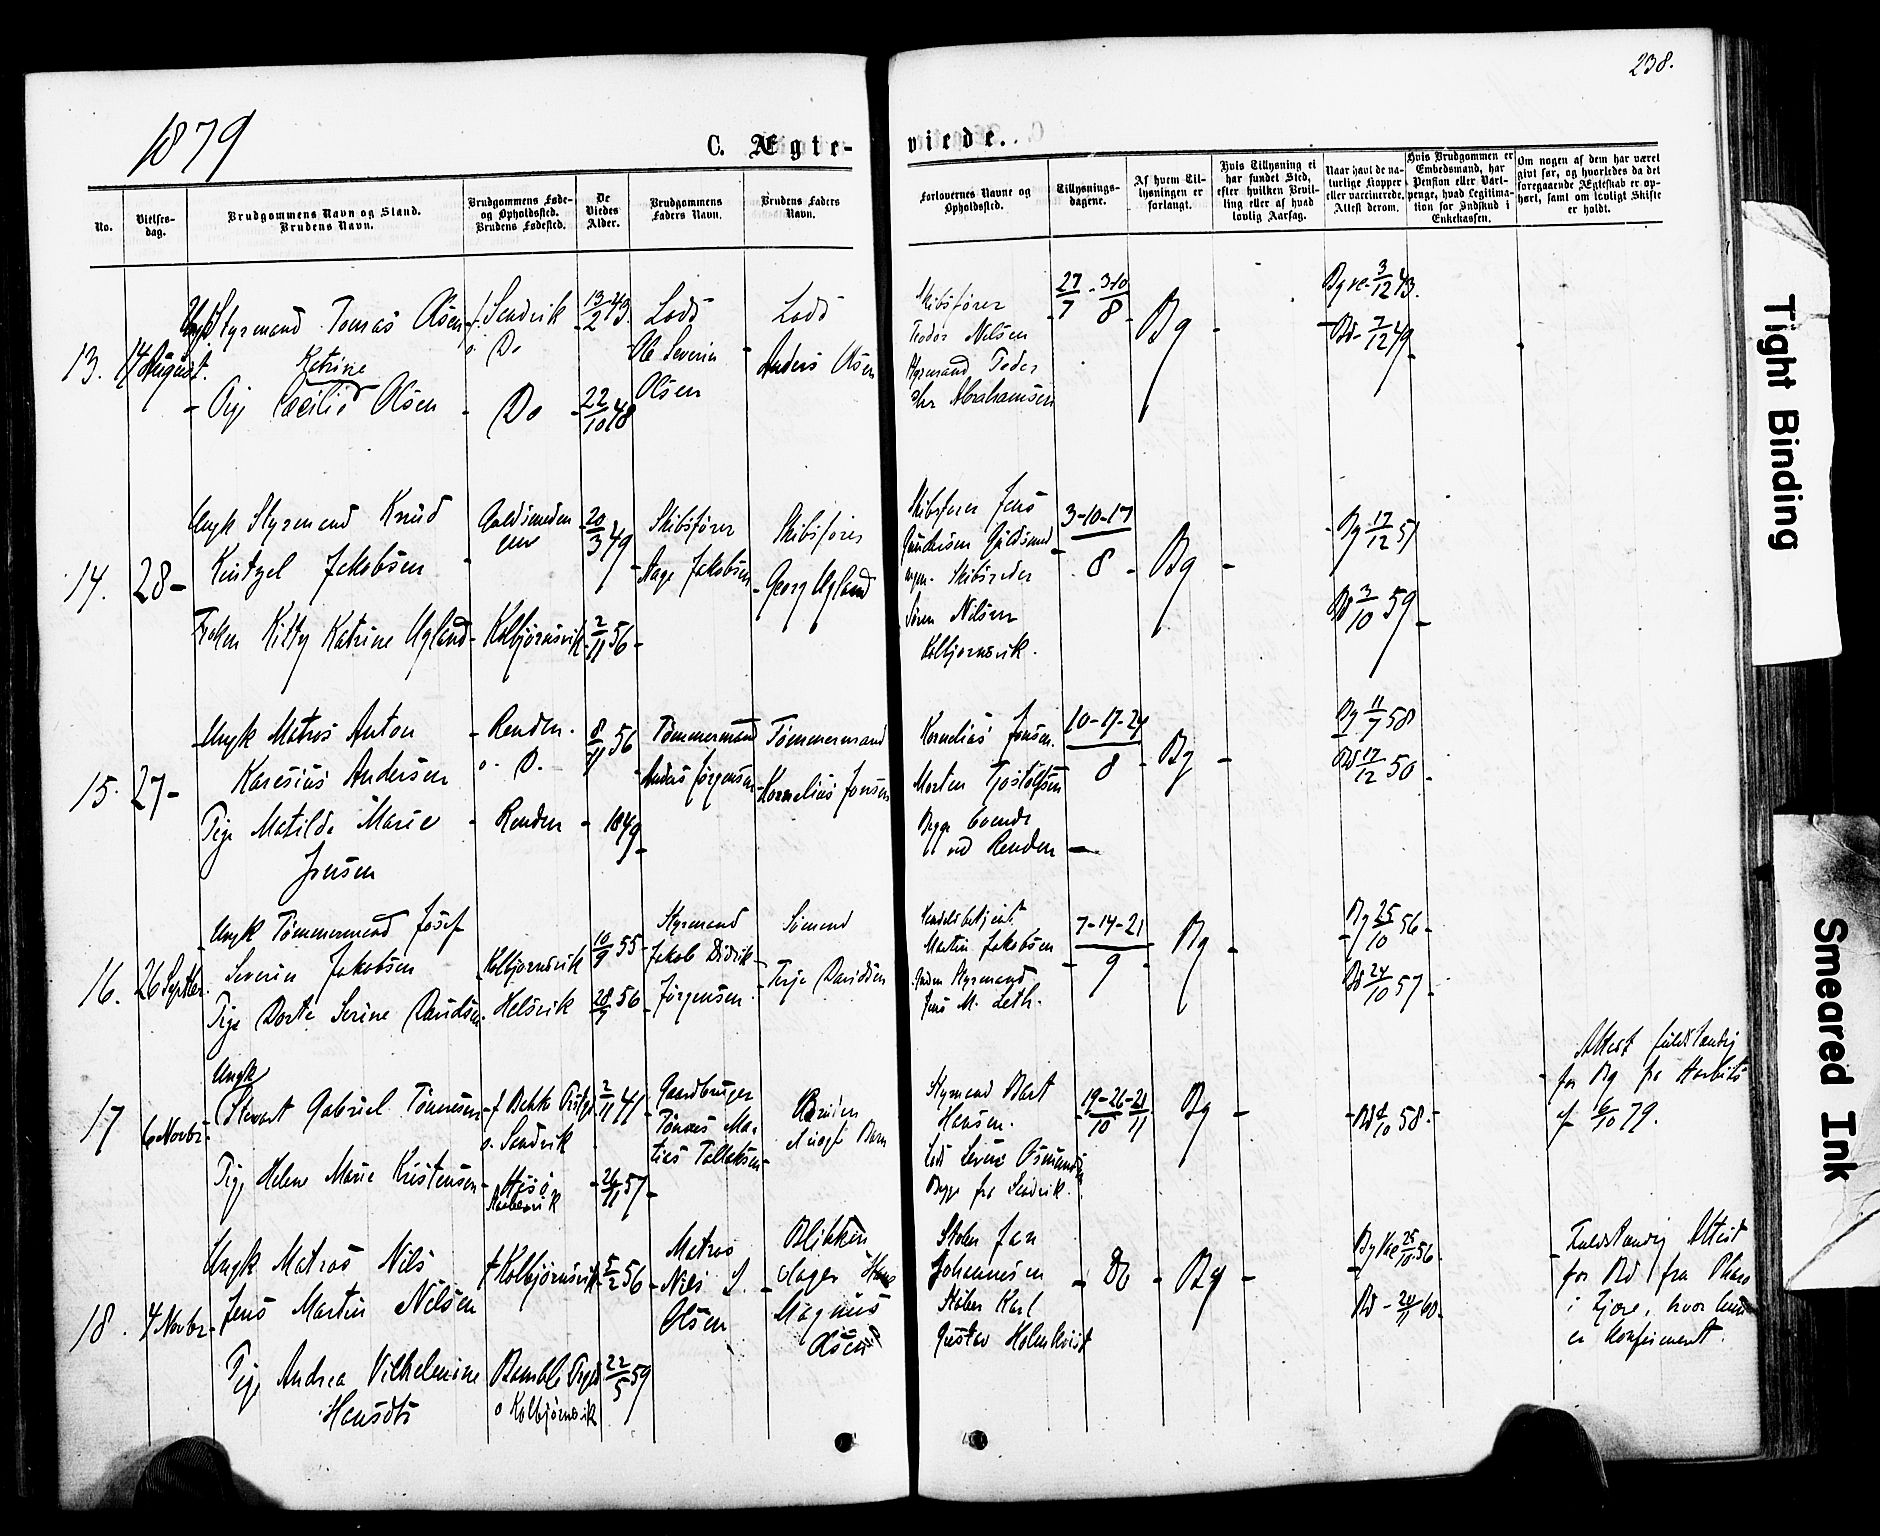 238.
1879
C. Ægte-
viede.
No.
Vielses-
dag.
Brudgommens Navn og Stand.
Brudens Navn.
Brudgommens Føde-
og Opholdssted.
Brudens Fødested.
De
Viedes
Alder.
Brudgommens
Faders Navn.
Brudens Faders
Navn.
Forlovernes Navne og
Opholdssted.
Tillysnings-
dagene.
Af hvem Til-
lysningen er
forlangt.
Hvis Tillysning ei
har fundet Sted,
efter hvilken Bevil-
ling eller af hvad
lovlig Aarsag.
Naar havt de na-
turlige Kopper
eller vaccinerede,
Attest derom.
Hvis Brudgommen er
Embedsmand, har
Pension eller Vart-
penge, hvad Legitima-
tion for Indskud i
Enkekassen.
Om nogen af dem har været
givt før, og hvorledes da det
foregaaende Ægteskab er op-
hørt, samt om lovligt Skifte
er holdt.
13.
14 August.
Ungk Styrmand Tomas Olsen
Katrine
Pige Cæcilie Olsen
f. Sandvik
o. Do
Do
13/2 43.
22/10 48
Lods
Ole Severin
Olsen
Lods
Anders Olsen
Skibsfører
Teodor Nilsen
Styrmand Peder
Chr Abrahamsen
27/7 - 3-10/8
Bg
Bg re- 3/12 43.
Bd- 7/12 49
14.
28-
Ungk Styrmand Knud
Keitzel Jakobsen
Frøken Kitty Katrine Ugland
Guldsmeden
gen
Kolbjørnsvik
20/3 49
2/11 56
Skibsfører
Aage Jakobsen
Skibsfører
Georg Ugland
Skibsfører Jens
Gundersen Guldsmed
engen. Skibsreder
Søren Nilsen
Kolbjørnsvik.
3-10-17/8
Bg
Bg 17/12 51
Bd 3/10 59
15.
27-
Ungk Matros Anton
Karesius Andersen
Pige Matilde Marie
Jensen
Renden.
o. D.
Renden
8/11 56
1849
Tømmermand
Anders Jørgensen
Tømmermand
Kornelius Jonsen
Kornelius Jonsen.
Morten Gjostolfsen
Begge boende
ved Renden
10-17-24/8
Bg
Bg 11/7 58
Bd 17/12 50
16.
26 Septbr.
Ungk Tømmermand Josef
Severin Jakobsen
Pige Dorte Serine Davidsen
Kolbjørnsvik
Helsvik
10/9 55
28/7 56
Styrmand
Jakob Didrik
Jørgensen.
Sømand
Terje Davidsen
Handelsbetjent
Martin Jakobsen
Styrmand
Jens M. Leth.
7-14-21/9
Bg
Bg 25/10 56
Bd 24/10 57
17
6 Novbr.
Ungk
Stuart Gabriel Tønnesen
Pige Helene Marie Kristensen
f Bekke Prstgj
o. Sandvik
Hisø
2/11 41
26/11 57
Gaardbruger
Tønnes Ma-
tias Tellefsen
Bruden
uægte Barn
Styrmand Bart
Hansen.
Lods Severin Osmundsen
Begge fra Sandvik.
19-26/10-21/11
Bg
Bd 4/10 58
Attest fuldstændig
for Bg fra
af 6/10 79.
18.
7 Novbr.
Ungk Matros Nils
Jens Martin Nilsen
Pige Andrea Vilhelmine
Hansdtr
f Kolbjørnsvik
Bamble Prgjd
o Kolbjørnsvik
5/2 56
22/5 59
Matros
Nils S.
Olsen
Blikken
slager Hans
Magnus
Olsen
Støber Jan
Johannesen
Støber Karl
Gustav Holmkvist
Do
Bg
Bg Vac 25/10 56
Bd - 20/11 60
Fuldstændig Attest
for Bd fra
i Kjøre, hvor hun
er konfirmeret.
Tight Binding
Smeared Ink